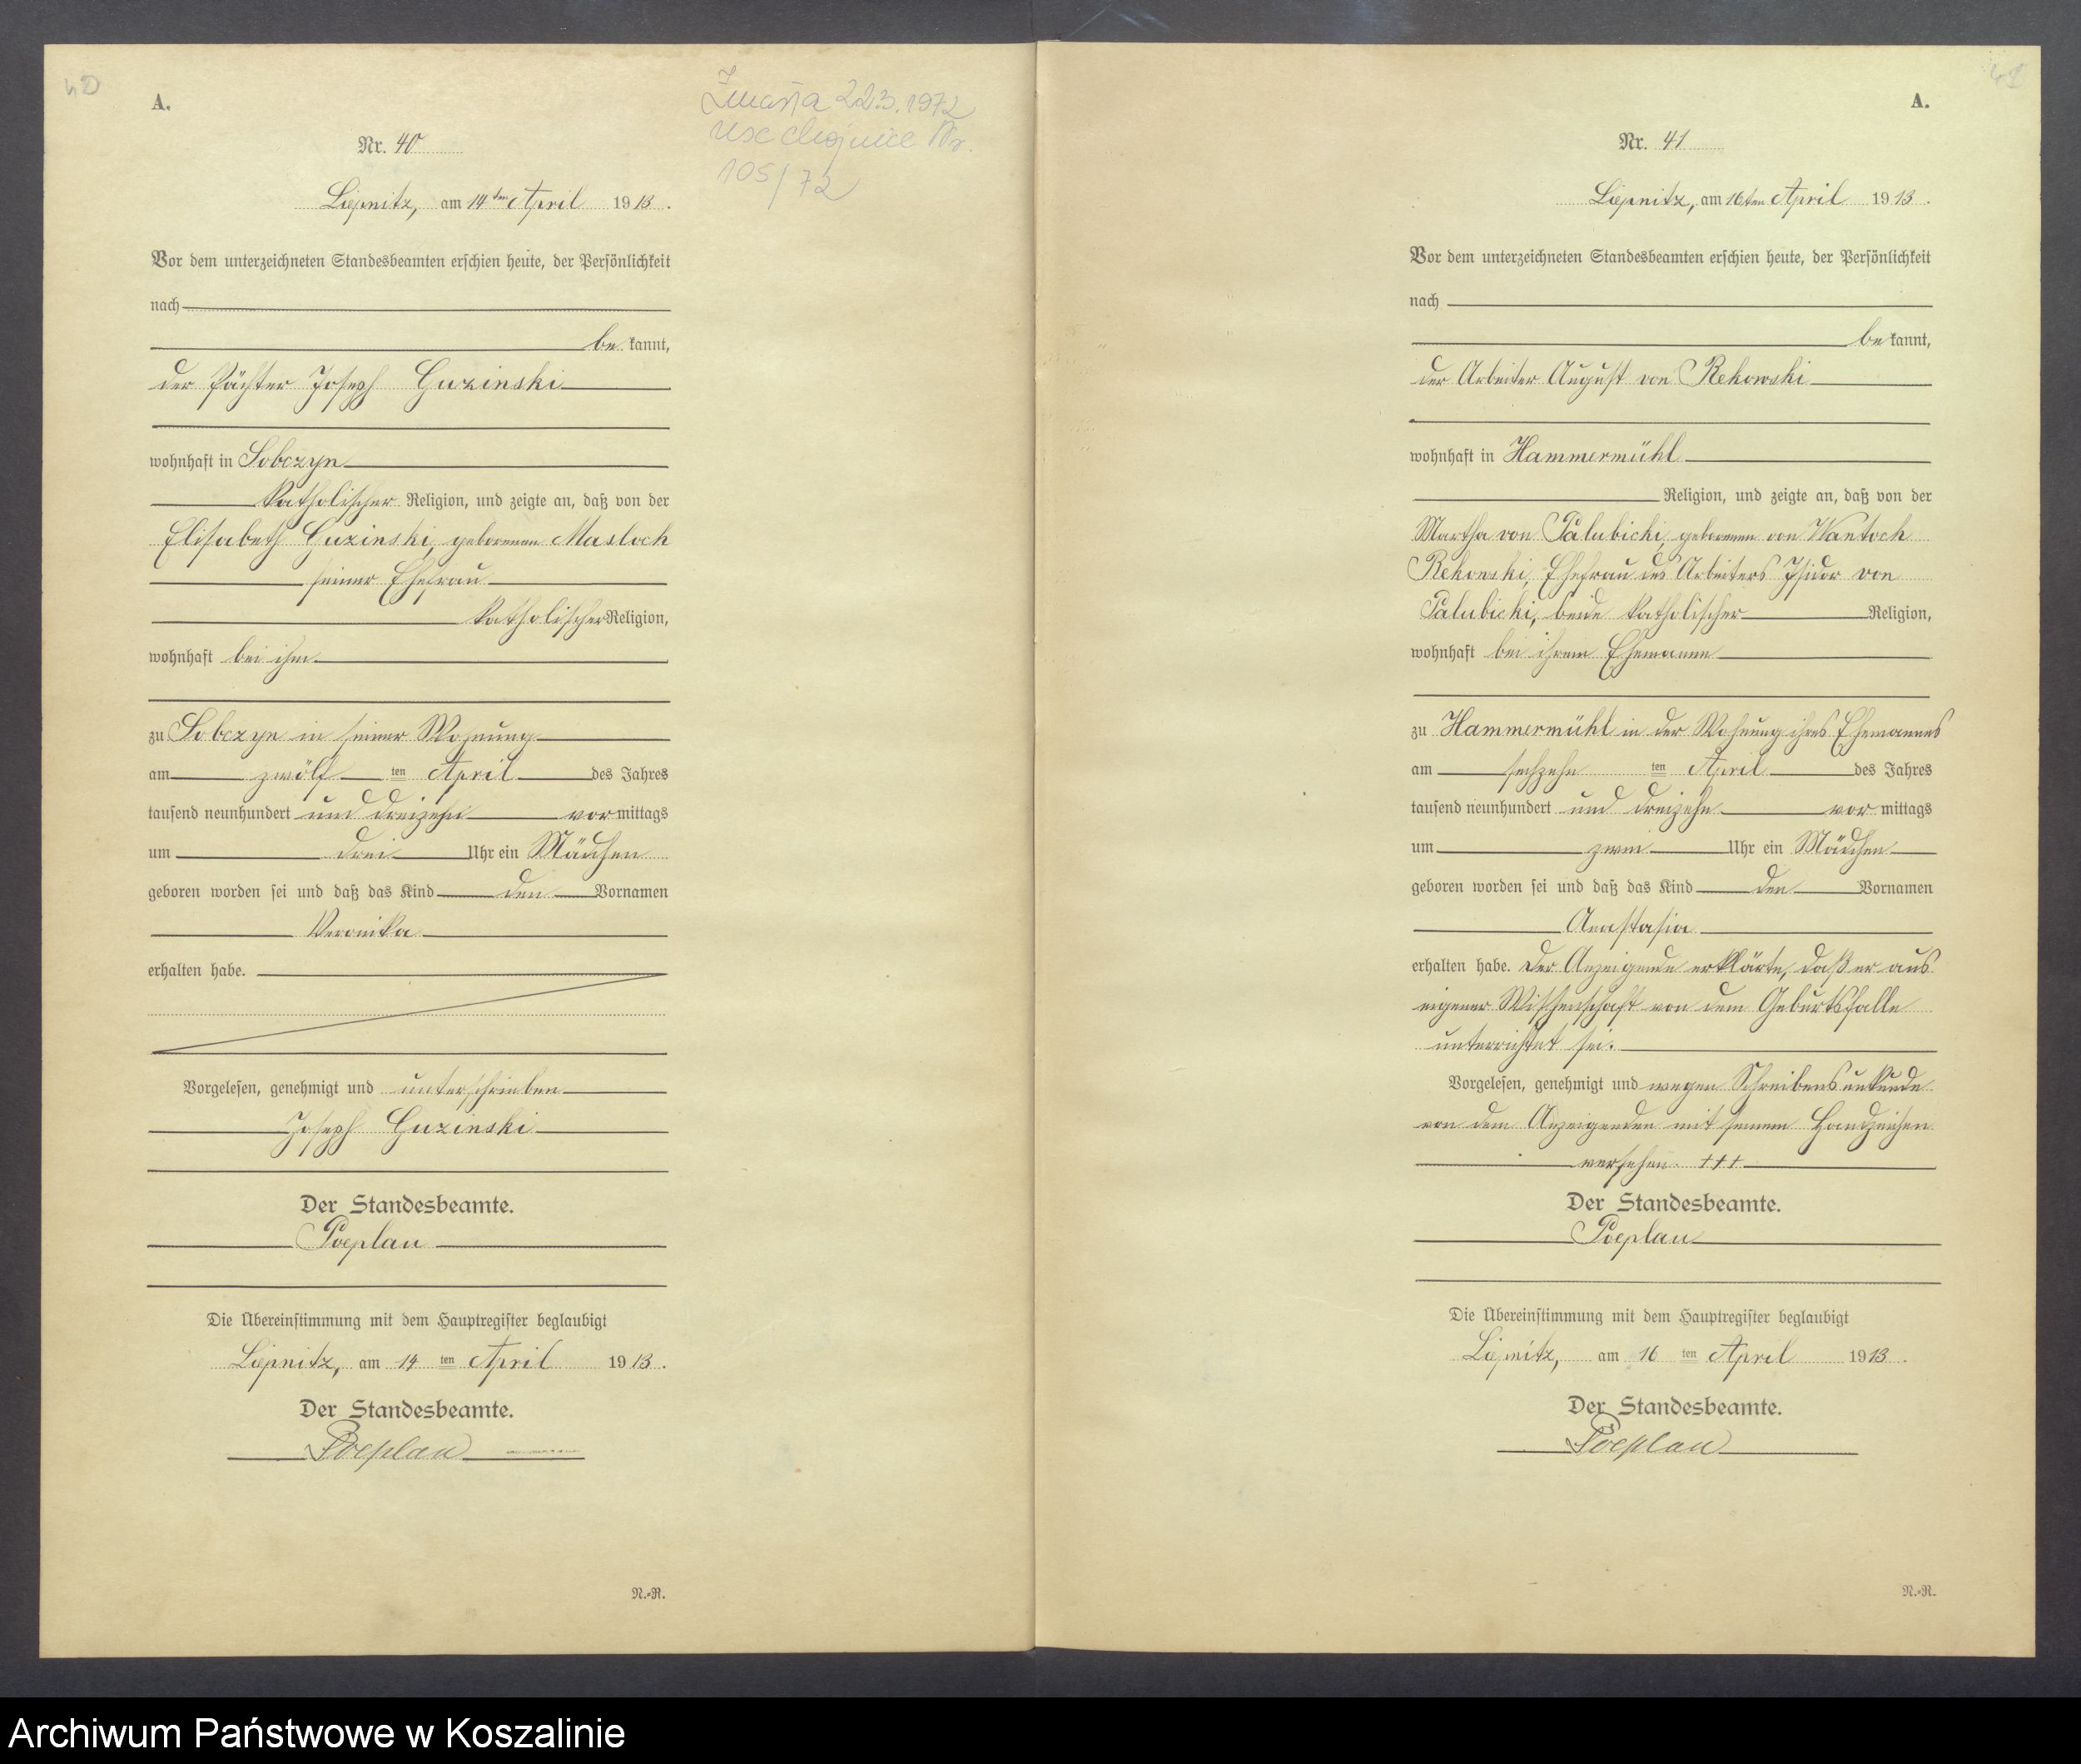 40
A.
Zmarła 22.3.1972
USC Chojnice Nr.
105/72
Nr. 40
Liepnitz, am 14ten April 1913.
Vor dem unterzeichneten Standesbeamten erschien heute, der Persönlichkeit
nach
be kannt,
der Pächter Joseph Guzinski
wohnhaft in Sobczyn
katholischer Religion, und zeigte an, daß von der
Elisabeth Guzinski, geborenen Masloch
seiner Ehefrau
katholischer Religion,
wohnhaft bei ihm
zu Sobczyn in seiner Wohnung
am zwölf ten April des Jahres
tausend neunhundert und dreizehn vormittags
um drei Uhr ein Mädchen
geboren worden sei und daß das Kind den Vornamen
Veronika
erhalten habe.
Vorgelesen, genehmigt und unterschrieben
Joseph Guzinski
Der Standesbeamte.
Poeplau
Die Übereinstimmung mit dem Hauptregister beglaubigt
Liepnitz, am 14 ten April 1913.
Der Standesbeamte.
Poeplau
N.-R.
41
A.
Nr. 41
Liepnitz, am 16ten April 1913.
Vor dem unterzeichneten Standesbeamten erschien heute, der Persönlichkeit
nach
be kannt,
der Arbeiter August von Rekowski
wohnhaft in Hammermühl
Religion, und zeigte an, daß von der
Martha von Palubicki, geborenen von Wantoch
Rekowski, Ehefrau des Arbeiters Isidor von
Palubicki, beide katholischer Religion,
wohnhaft bei ihrem Ehemanne
zu Hammermühl in der Wohnung ihres Ehemannes
am sechzehn ten April des Jahres
tausend neunhundert und dreizehn vor mittags
um zwei Uhr ein Mädchen
geboren worden sei und daß das Kind den Vornamen
Anastasia
erhalten habe. Der Anzeigende erklärte, daß er aus
eigener Wissenschaft von dem Geburtsfalle
unterrichtet sei.
Vorgelesen, genehmigt und wegen Schreibensunkunde
von dem Anzeigenden mit seinem Handzeichen
versehen. +++
Der Standesbeamte.
Poeplau
Die Übereinstimmung mit dem Hauptregister beglaubigt
Liepnitz, am 16 ten April 1913.
Der Standesbeamte.
Poeplau
N.-R.
Archiwum Państwowe w Koszalinie